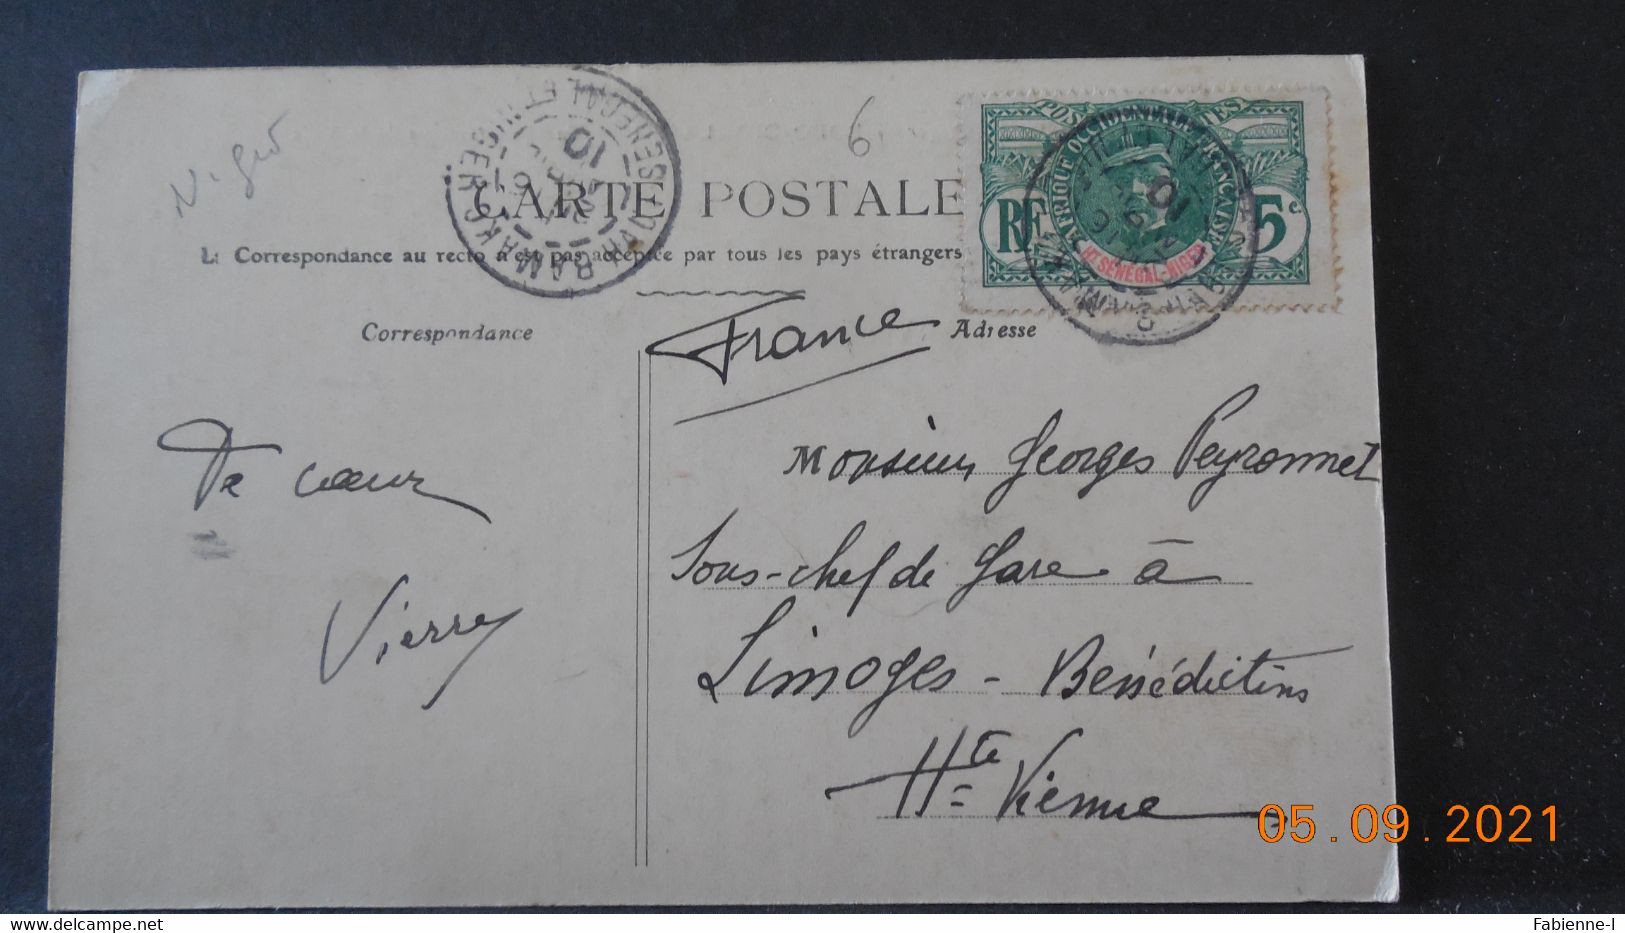 Niger
6
CARTE POSTALE
La Correspondance au recto n'est pas acceptée par tous les pays étrangers
Correspondance
Adresse
HT SÉNÉGAL ET NIGER
BAMAKO
10
POSTES
AFRIQUE OCCIDENTALE FRANÇAISE
RF
5 c
HT SÉNÉGAL-NIGER
France
De cœur
Pierre
Monsieur Georges Peyronnet
Sous-chef de Gare à
Limoges - Bénédictins
Hte Vienne
05.09.2021
Fabienne-l